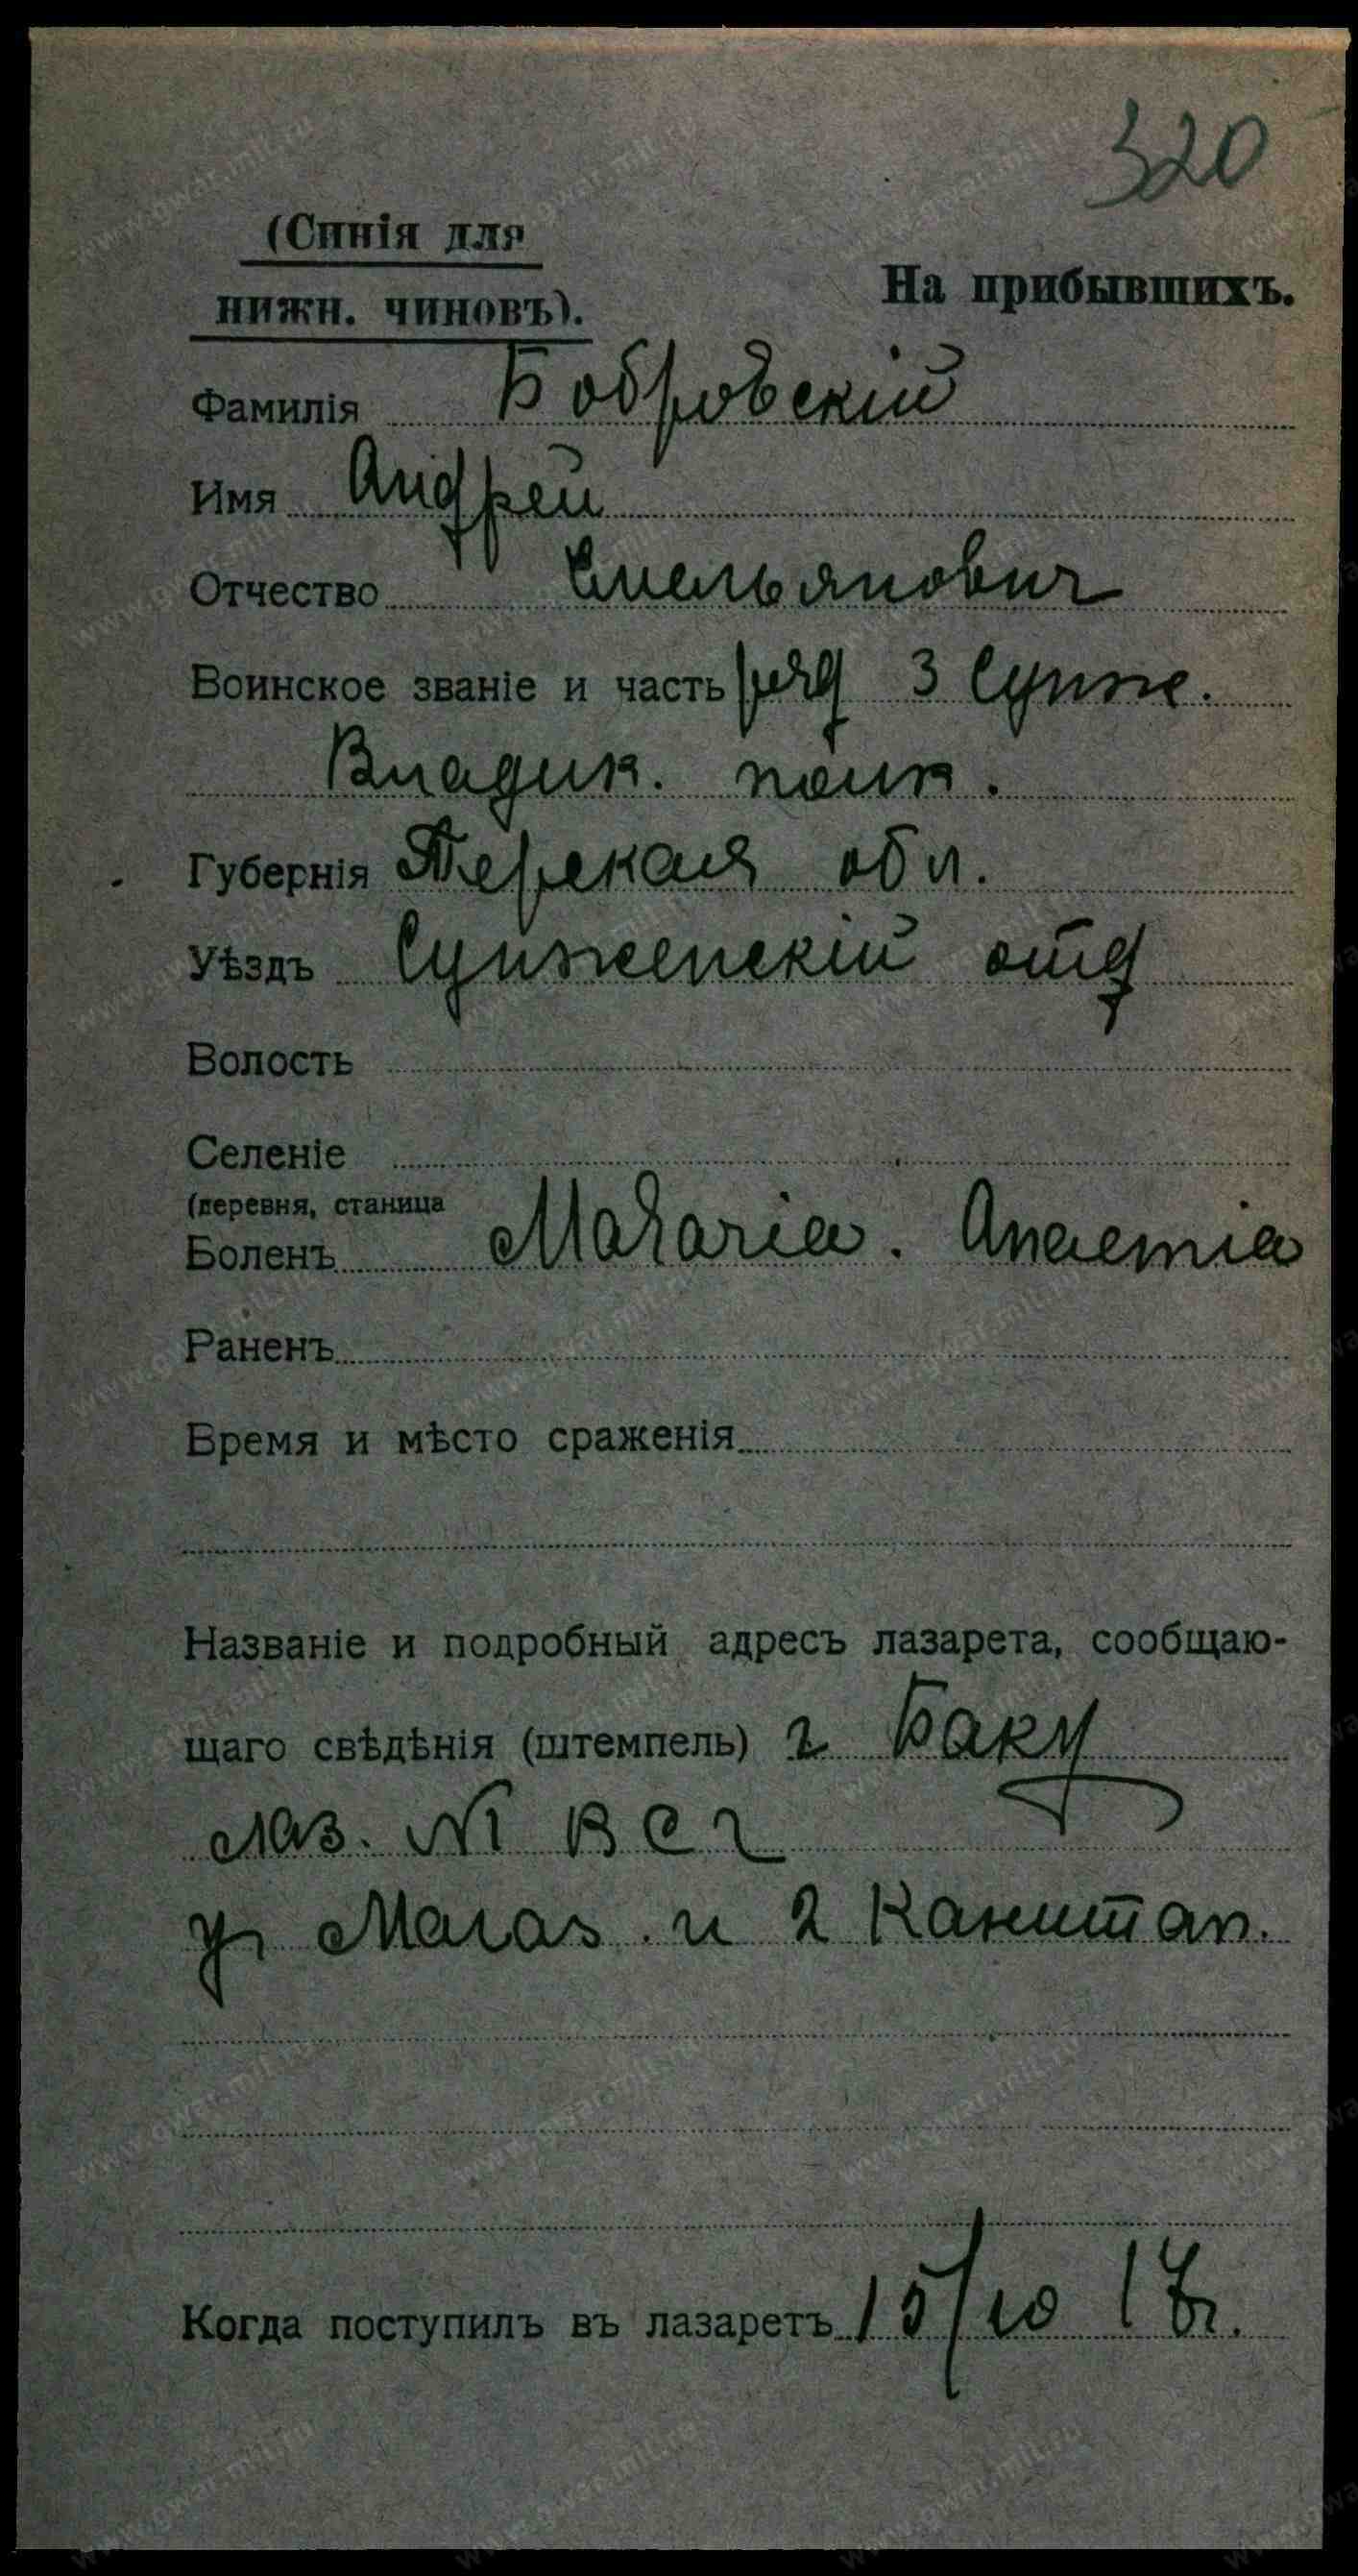 320
(Синія для
нижн. чиновъ).
На прибывшихъ.
Фамилія Бобровскій
Имя Андрей
Отчество Емельянович
Воинское званіе и часть ряд 3 Сунже.
Владик. полк.
Губернія Терская обл.
Уѣздъ Сунженскій отд
Волость
Селеніе
(деревня, станица
Боленъ Malaria. Anaemia
Раненъ
Время и мѣсто сраженія
Названіе и подробный адресъ лазарета, сообщаю-
щаго свѣдѣнія (штемпель) г Баку
лаз. №1 В С Г
уг Магаз. и 2 Канитап.
Когда поступилъ въ лазаретъ 15/10 17г.
www.gwar.mil.ru